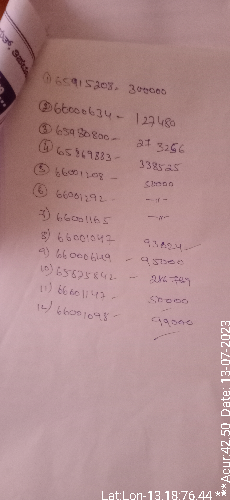 1) 65915208- 300000
2) 66000634- 127480
3) 65980800- 273256
4) 65869883- 338525
5) 66001208-
6) 66001292- -"-
7) 66001165 -"-
8) 66001047
9) 66000649 - 95000
10) 65875842 -
11) 66001147- 50000
12) 66001098- 99000
Lat:Lon-13.18:76.44 **Acur:42.50 Date: 13-07-2023